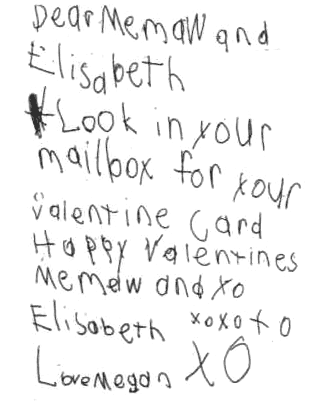 Dear Memaw and
Elisabeth
Look in your
mailbox for your
valentine Card
Happy Valentines
Memaw and xo
Elisabeth xoxo+o
Love Megan XO